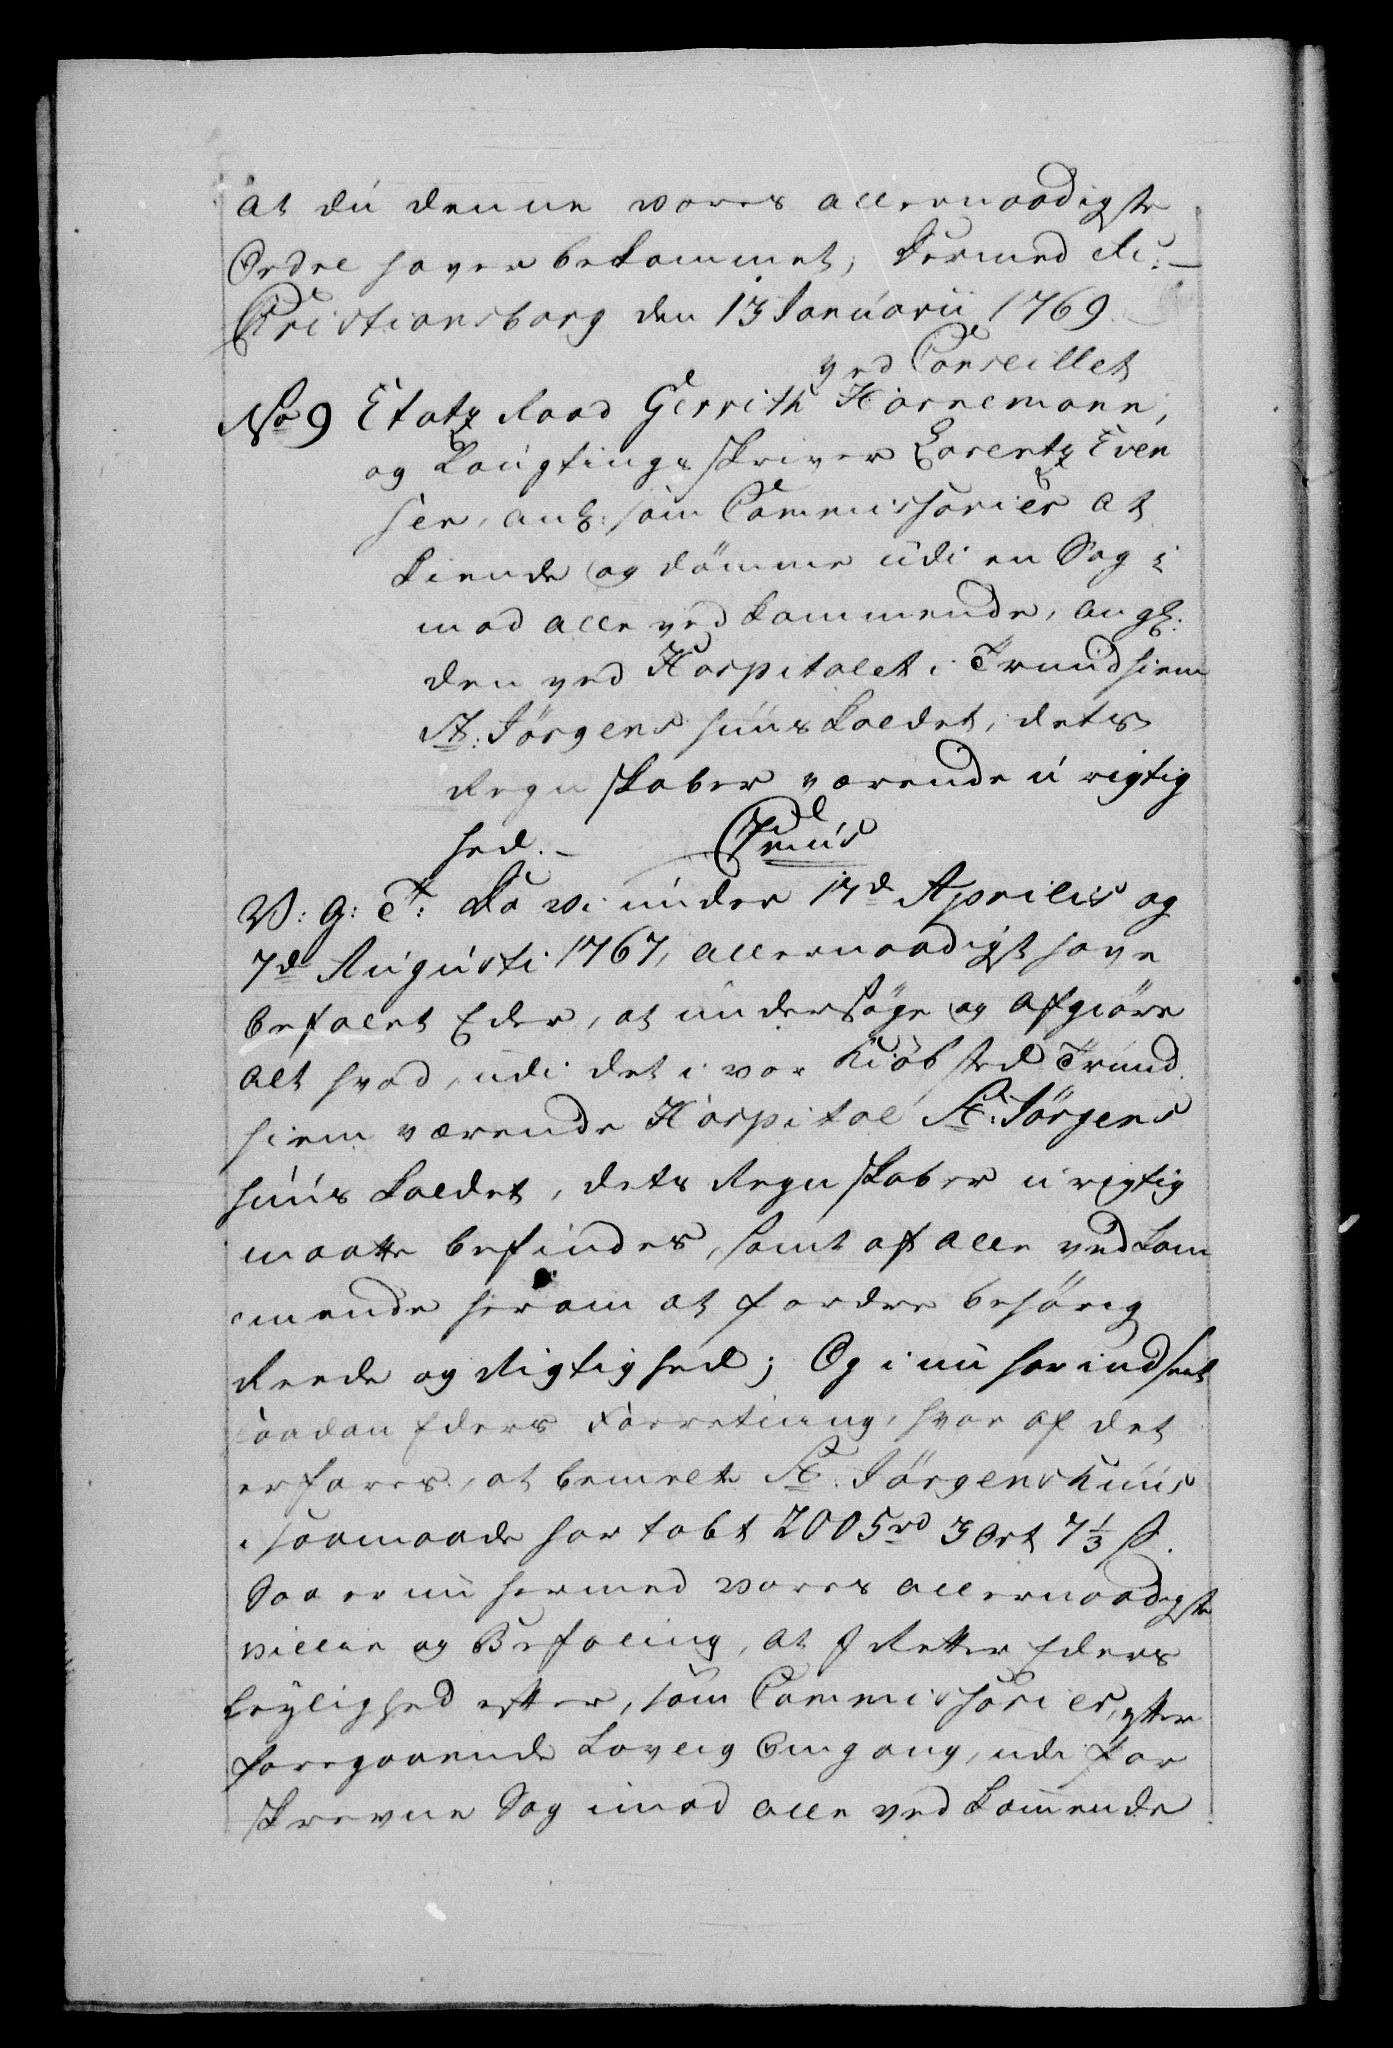 at du denne vores allernaadigste
Ordre haver bekommet, dermed etc: –
Christiansborg den 13 Januarii 1769.
ved Conseillet
No 9 Etatz Raad Gerrith Hornemann,
og Laugtings skriver Lorentz Even
sen, anl: som Commissarier at
kiende og dömme udi en Sag i
mod alle ved kommende, angl:
den ved Hospitalet i Trundhiem
St: Jörgens huus kaldet, dets
Regnskaber værende u rigtig
hed. –
V: G: T: Da vi under 17d Aprilis og
7d Augusti 1767, allernaadigst have
befalet Eder, at undersöge og afgiöre
alt hvad, udi det i vor Kiöbsted Trund
hiem værende Hospital St: Jörgens
huus kaldet, dets Regnskaber u rigtig
maatte befindes, samt af alle vedkom
mende herom at fordre behörig
Reede og Rigtighed; Og i nu har indsent
saadan Eders Forretning, hvor af det
erfares, at bemelte St: Jörgens huus
i saamaade har tabt 2005rd 3 Ort 7 1/3 ß.
Saa er nu hermed vores allernaadigste
villie og Befaling, at I Retter Eders
Leylighed efter, som Commissarier, efter
foregaaende Lovlig Omgang, udi for
skrevne Sag imod alle ved kom̄ende